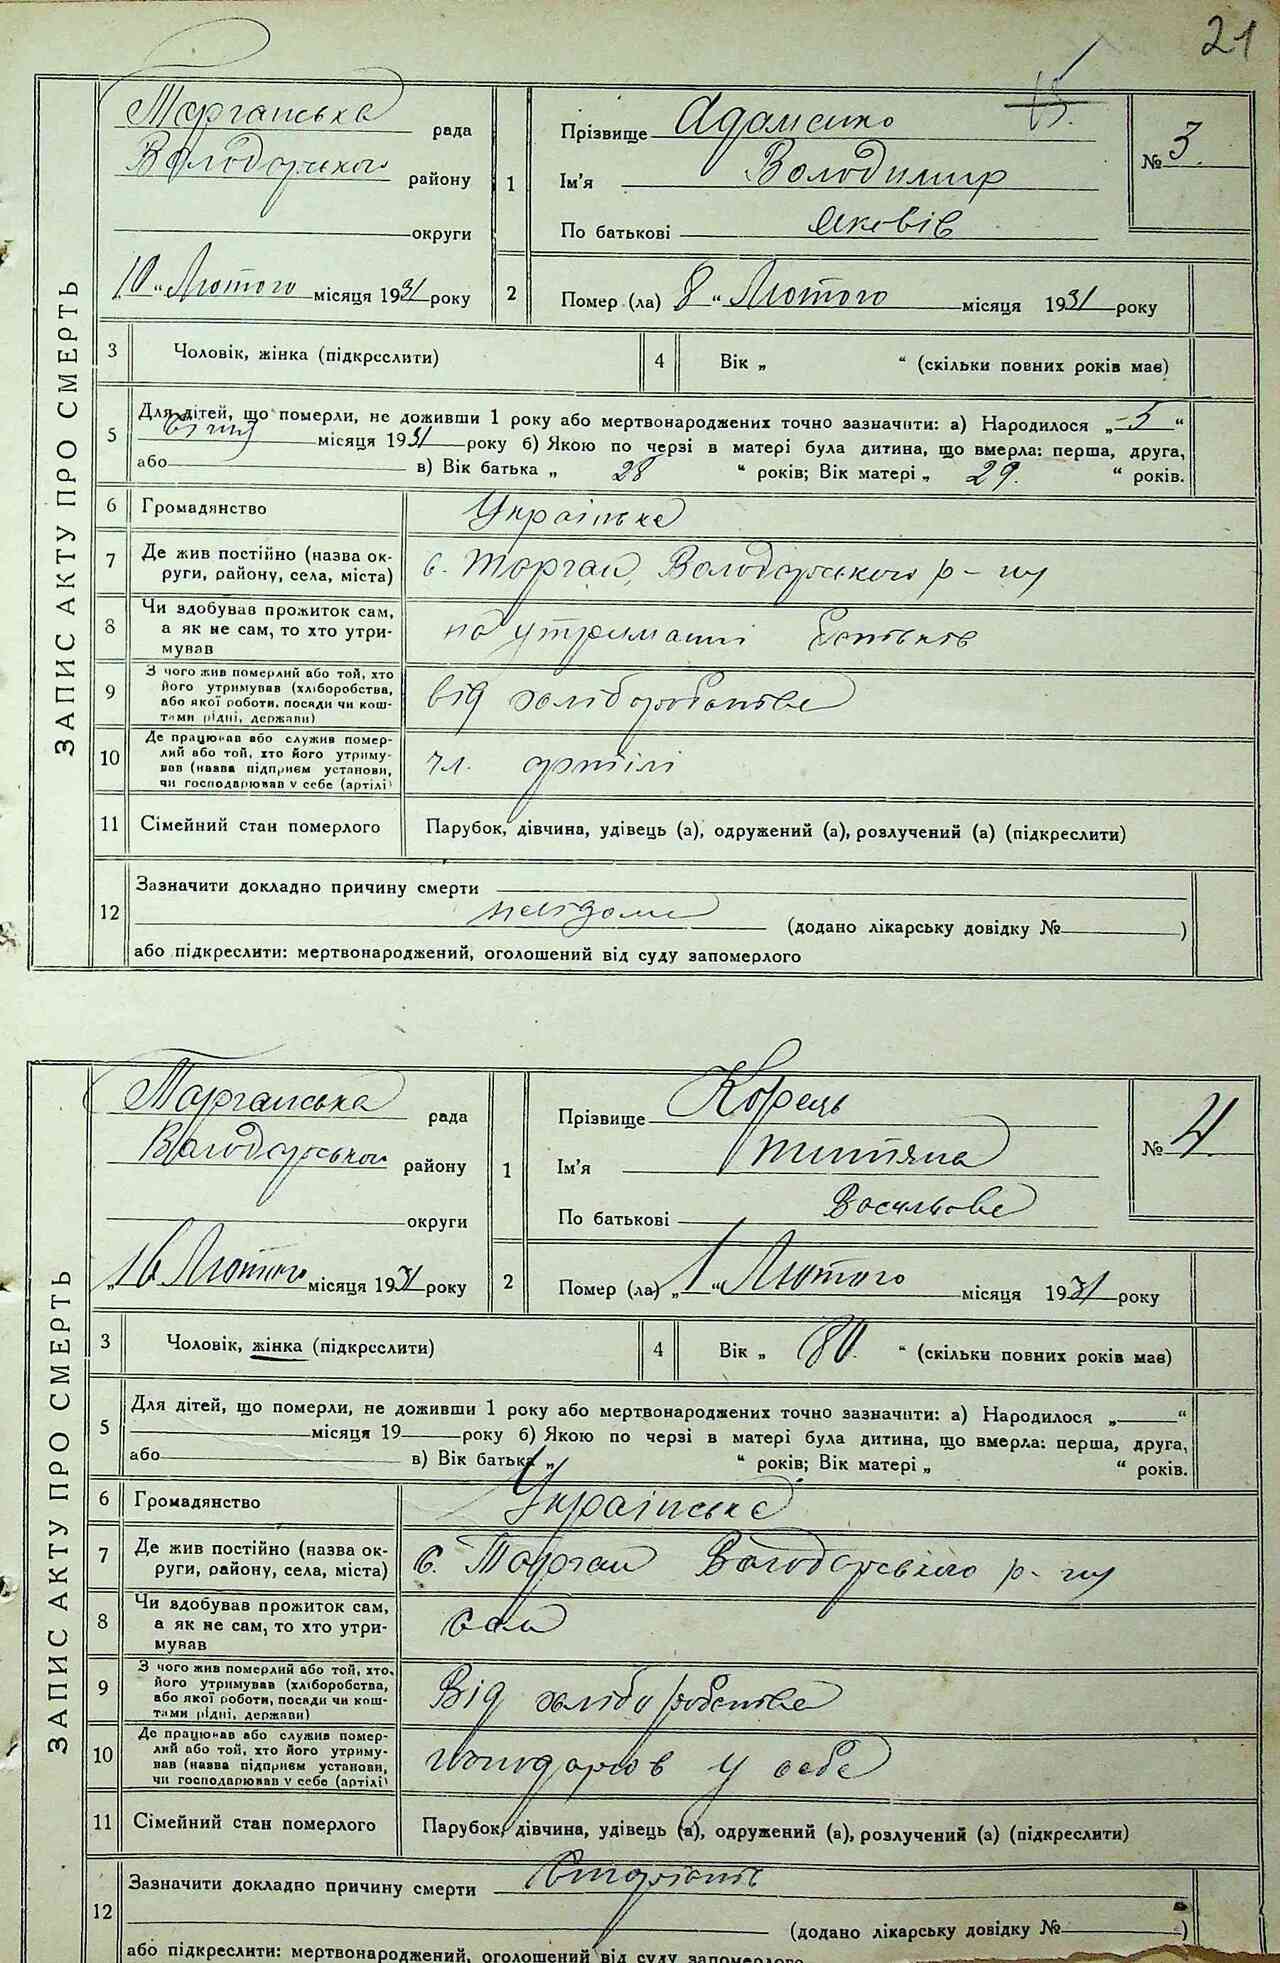 21
ЗАПИС АКТУ ПРО СМЕРТЬ
Торганська рада
Володарського району
округи
10 " Лютого місяця 1931 року
1 Прізвище Адаменко
Ім'я Володимир
По батькові Яковів
15.
№ 3.
2 Помер (ла) 8 " Лютого місяця 1931 року
3 Чоловік, жінка (підкреслити)
4 Вік „ “ (скільки повних років мав)
5 Для дітей, що померли, не доживши 1 року або мертвонароджених точно зазначити: а) Народилося „ 5 “
січня місяця 1931 року б) Якою по черзі в матері була дитина, що вмерла: перша, друга,
або в) Вік батька „ 28 “ років; Вік матері „ 29. “ років.
6 Громадянство Українське
7 Де жив постійно (назва округи, району, села, міста) с. Торган, Володарського р-ну
8 Чи здобував прожиток сам, а як не сам, то хто утримував на утриманні батьків
9 З чого жив померлий або той, хто його утримував (хліборобства, або якої роботи, посади чи коштами рідні, держави) від хліборобства
10 Де працював або служив померлий або той, хто його утримував (назва підприєм установи, чи господарював у себе (артілі) чл. артілі
11 Сімейний стан померлого Парубок, дівчина, удівець (а), одружений (а), розлучений (а) (підкреслити)
12 Зазначити докладно причину смерти
невідома (додано лікарську довідку № )
або підкреслити: мертвонароджений, оголошений від суду запомерлого
ЗАПИС АКТУ ПРО СМЕРТЬ
Торганська рада
Володарського району
округи
„16 Лютого місяця 1931 року
1 Прізвище Корець
Ім'я Титяна
По батькові Васильова
№ 4
2 Помер (ла) „ 1 “ Лютого місяця 1931 року
3 Чоловік, жінка (підкреслити)
4 Вік „ 80. “ (скільки повних років мав)
5 Для дітей, що померли, не доживши 1 року або мертвонароджених точно зазначити: а) Народилося „ “
місяця 19 року б) Якою по черзі в матері була дитина, що вмерла: перша, друга,
або в) Вік батька „ “ років; Вік матері „ “ років.
6 Громадянство Українське
7 Де жив постійно (назва округи, району, села, міста) с. Торган Володарського р-ну
8 Чи здобував прожиток сам, а як не сам, то хто утримував сам
9 З чого жив померлий або той, хто його утримував (хліборобства, або якої роботи, посади чи коштами рідні, держави) Від хліборобства
10 Де працював або служив померлий або той, хто його утримував (назва підприєм установи, чи господарював у себе (артілі) господарюв у себе
11 Сімейний стан померлого Парубок, дівчина, удівець (а), одружений (а), розлучений (а) (підкреслити)
12 Зазначити докладно причину смерти Старість
(додано лікарську довідку № )
або підкреслити: мертвонароджений, оголошений від суду запомерлого